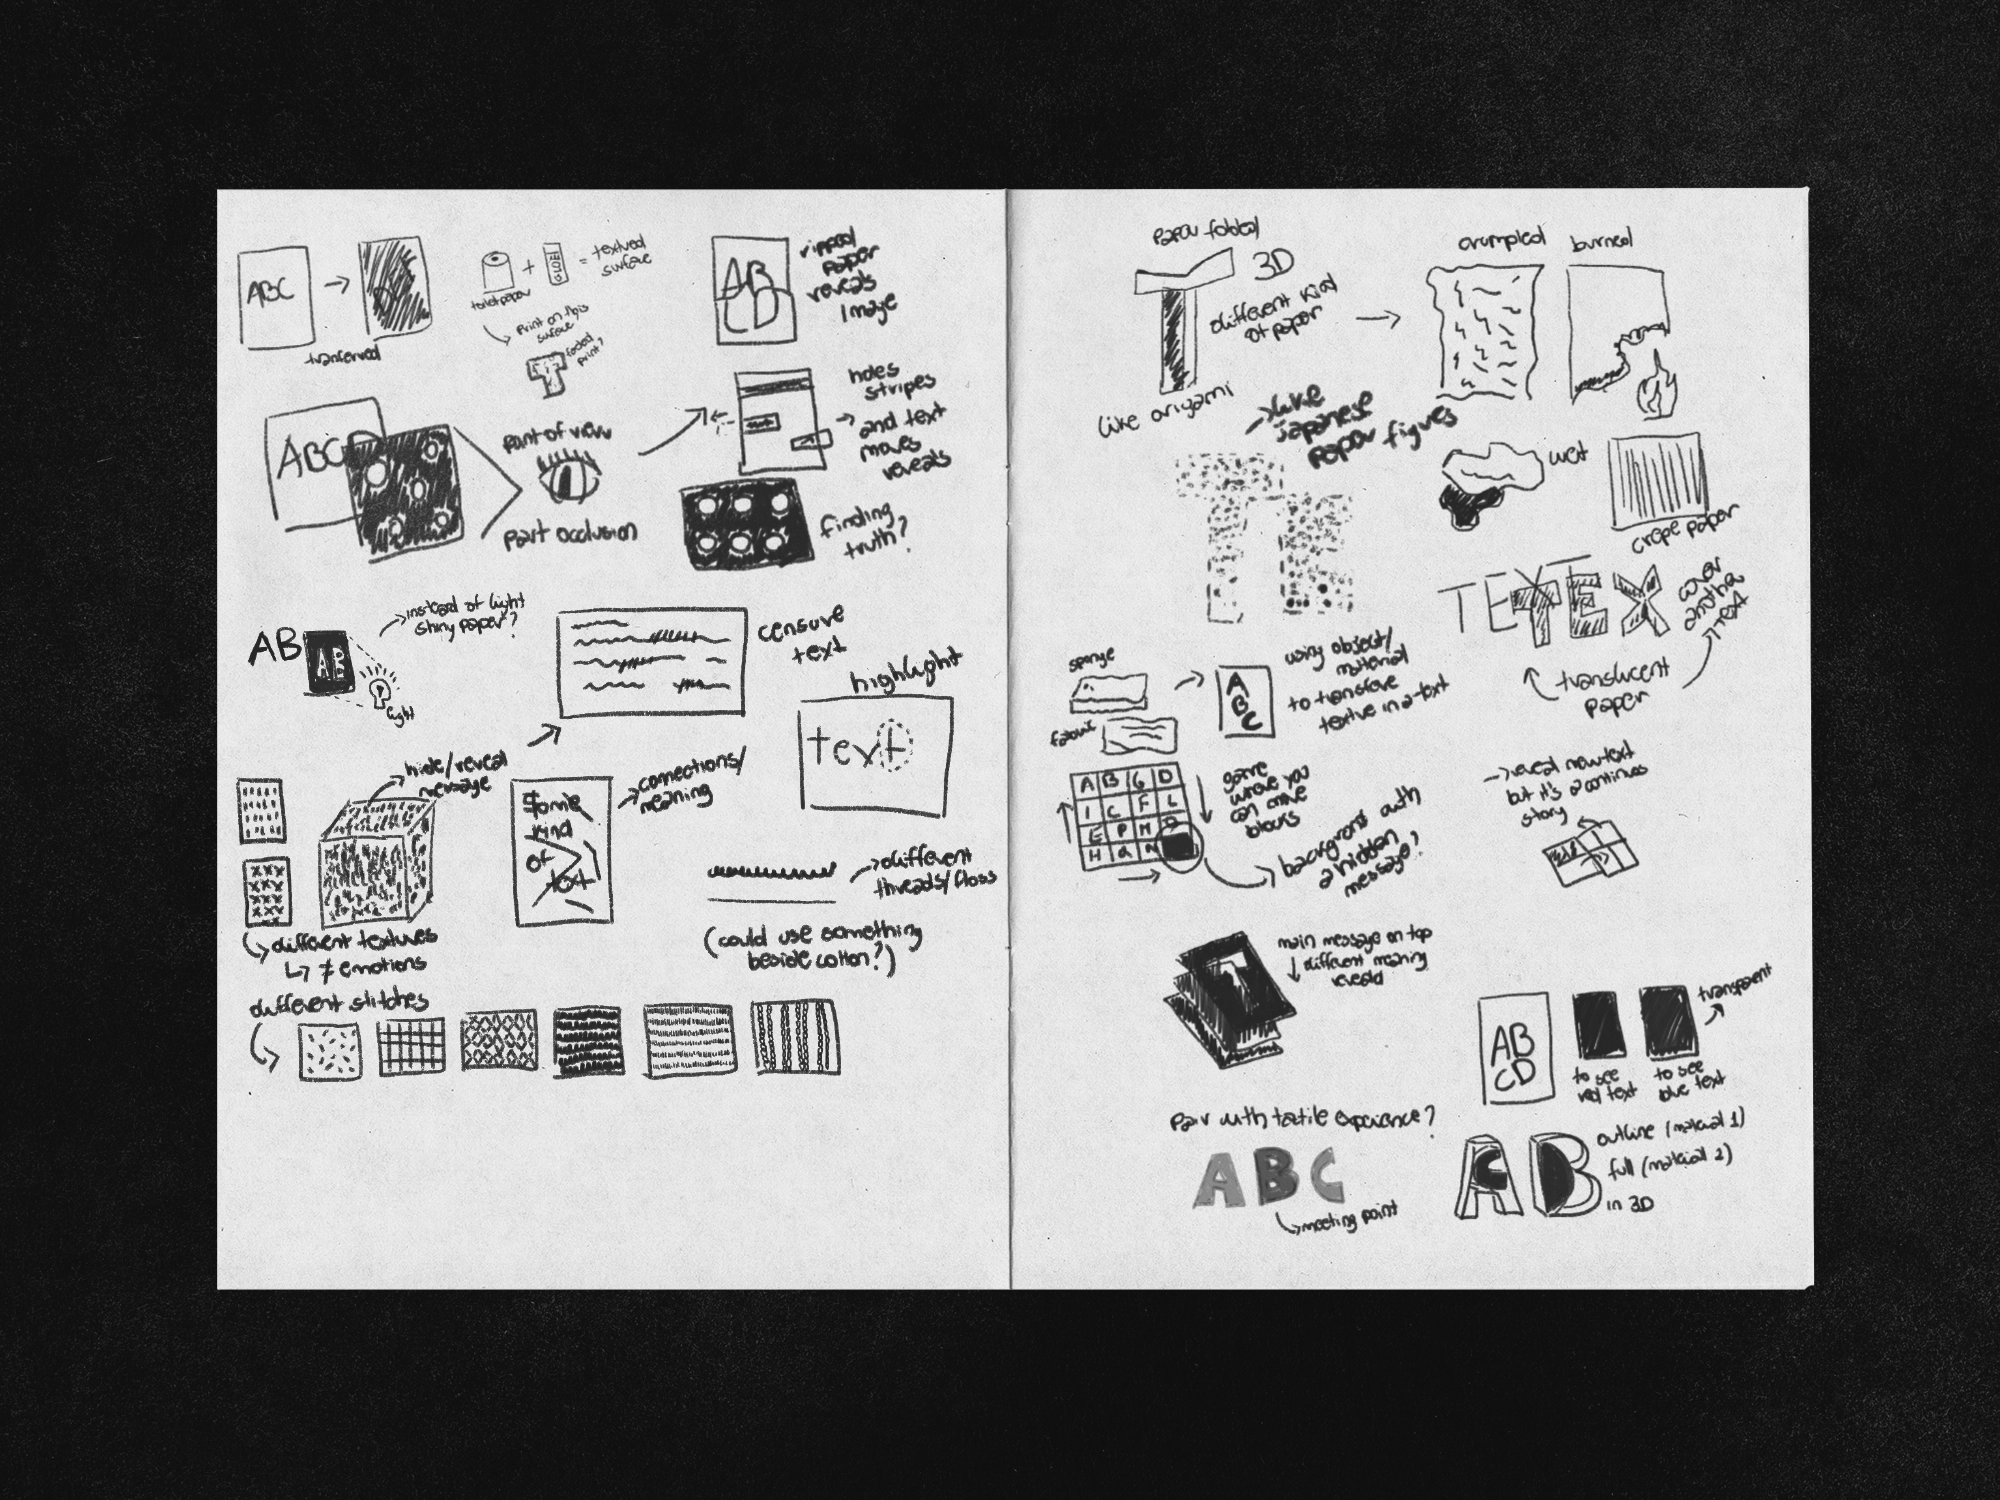 ABC
tranferred
toilet paper
+
GLUE
= textured
surface
print on this
surface
folded
print?
AB
CD
ripped
paper
reveals
image
ABCD
point of view
part occlusion
holes
stripes
and text
moves
reveals
finding
truth?
AB
AB
instead of light
shiny paper?
light
censure
text
highlight
text
hide/reveal
message
different textures
≠ emotions
Some
kind
of
text
connections/
meaning
different
threads/floss
(could use something
beside cotton?)
different stitches
paper folded
3D
different kind
of paper
like origami
like
japanese
paper figures
crumpled
burned
wet
crepe paper
T E
TETEX
cover
another
text
translucent
paper
sponge
fabric
A
B
C
using object/
material
to transfere
textue in a text
A B G D
I C F L
E P H
H Q N
game
where you
can move
blocks
background with
a hidden
message?
reveal new text
but it's a continuos
story
main message on top
different meaning
reveald
AB
CD
to see
red text
to see
blue text
transparent
pair with tactile experience?
ABC
meeting point
A B
C
outline (material 1)
full (material 2)
in 3D